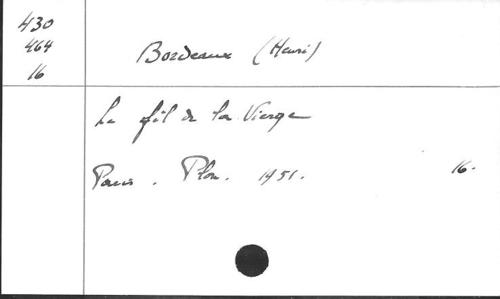 430
464
16
Bordeaux (Henri)
Le fil de la Vierge
Paris. Plon. 1951.
16.